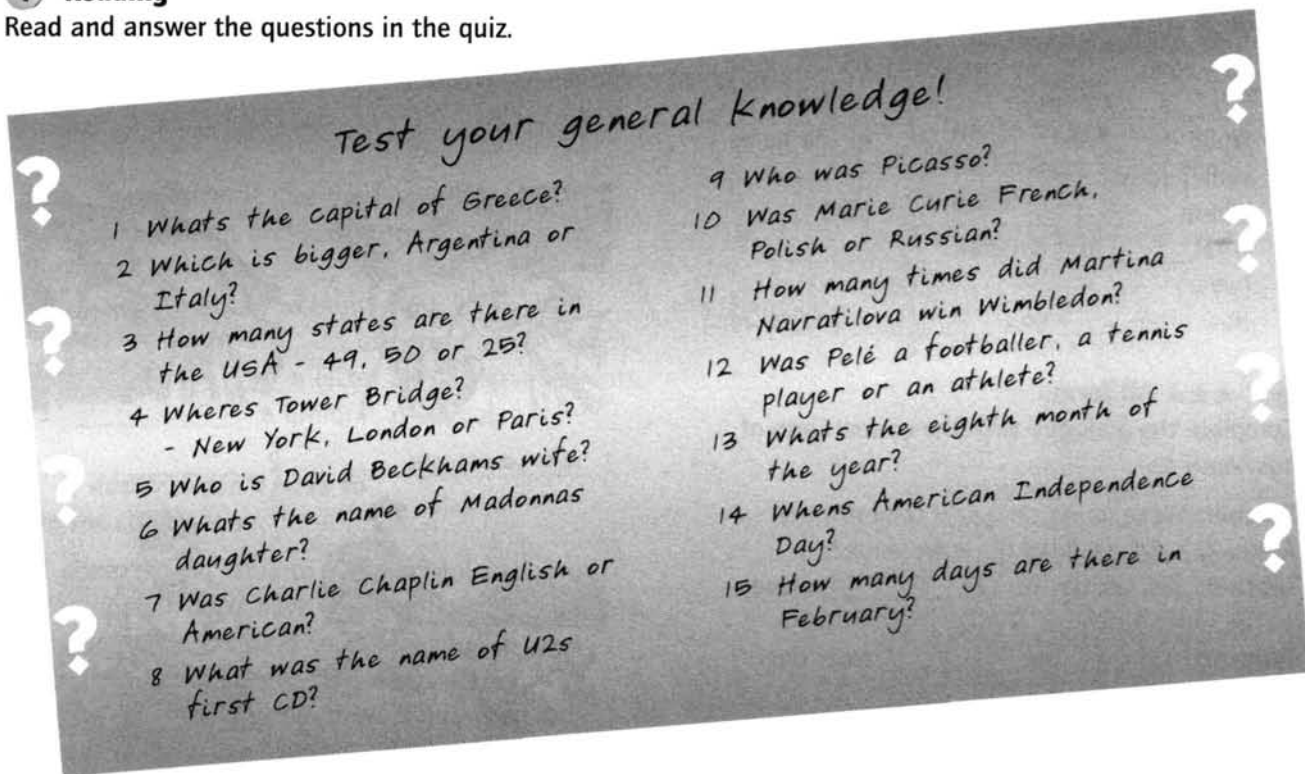 Read and answer the questions in the quiz.
Test your general knowledge!
1 Whats the capital of Greece?
2 Which is bigger, Argentina or
Italy?
3 How many states are there in
the USA - 49, 50 or 25?
4 Wheres Tower Bridge?
- New York, London or Paris?
5 Who is David Beckhams wife?
6 Whats the name of Madonnas
daughter?
7 Was Charlie Chaplin English or
American?
8 What was the name of U2s
first CD?
9 Who was Picasso?
10 Was Marie Curie French,
Polish or Russian?
11 How many times did Martina
Navratilova win Wimbledon?
12 Was Pelé a footballer, a tennis
player or an athlete?
13 Whats the eighth month of
the year?
14 Whens American Independence
Day?
15 How many days are there in
February?